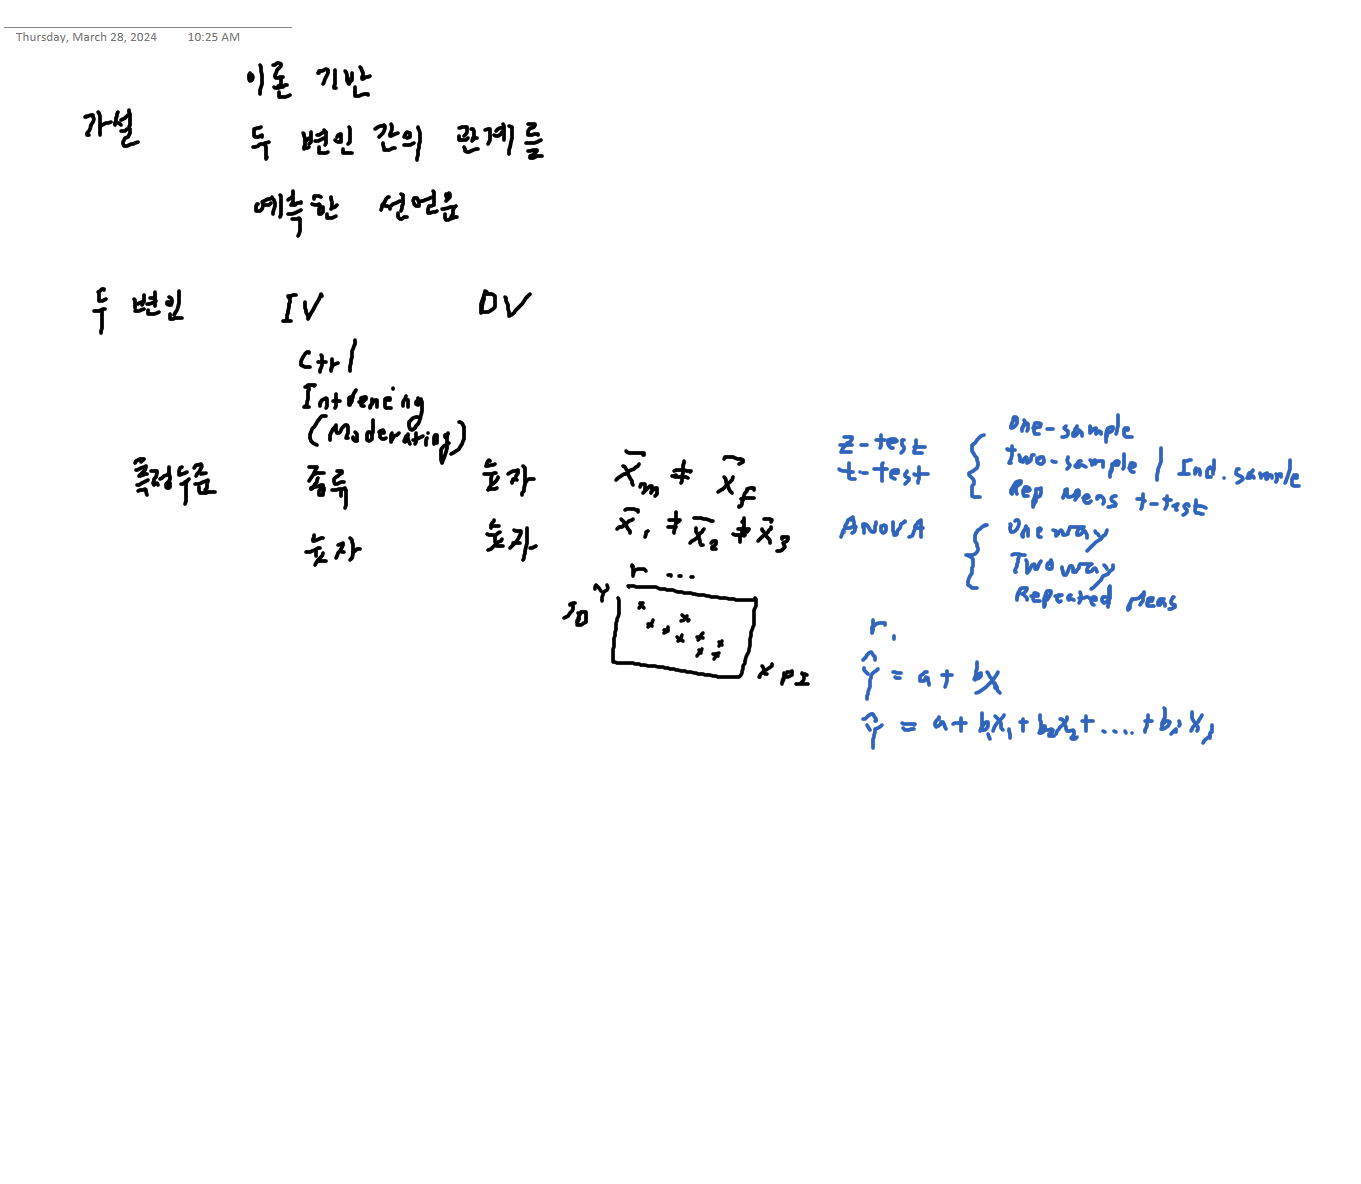 Thursday, March 28, 2024 10:25 AM
이론 기반
가설 두 변인 간의 관계를
예측한 선언문
두 변인 IV DV
Ctrl
Intvencing
(Moderating)
측정수준 종류 숫자 X̄m ≠ X̄f
숫자 숫자 X̄1 ≠ X̄2 ≠ X̄3
r ...
Y
JD
X PI
z-test
t-test
one-sample
two-sample / Ind. sample
Rep Meas t-test
ANOVA
one way
Two way
Repeated Meas
r.
Ŷ = a + bX
Ŷ = a + b1X1 + b2X2 + .... + biXi